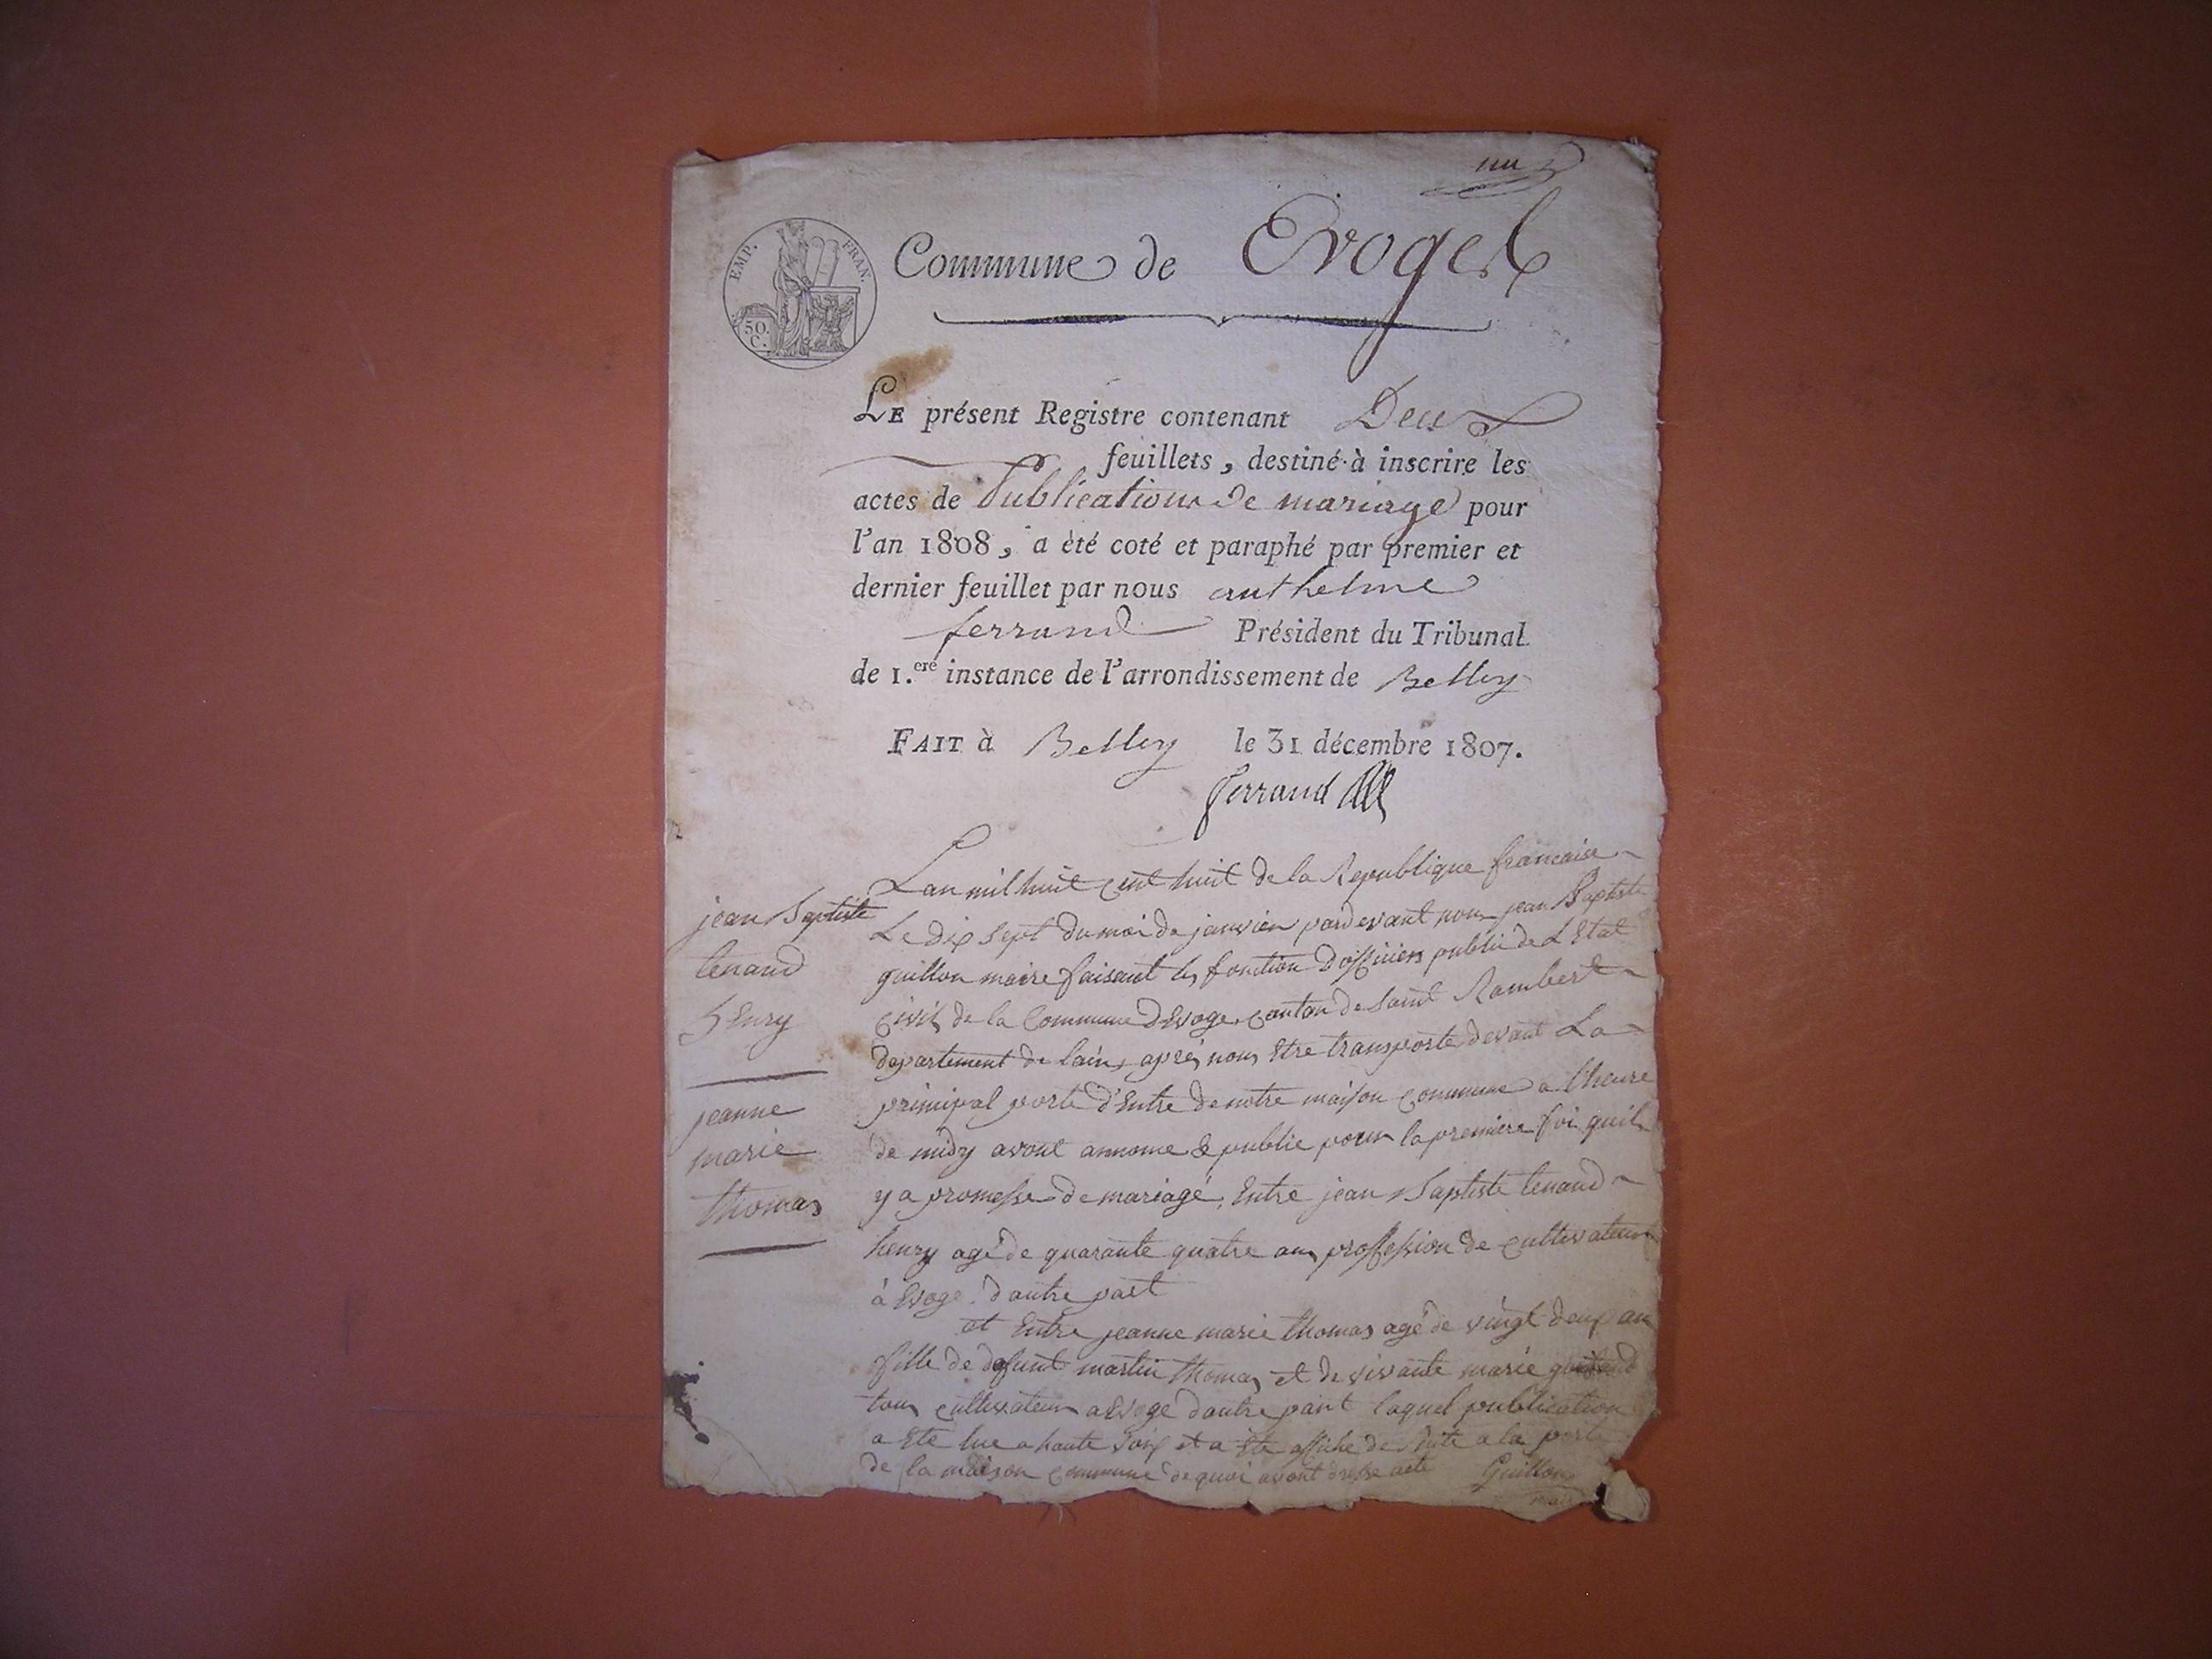 un
EMP. FRAN.
50.
C.
Commune de Evoges
LE présent Registre contenant Deux
feuillets, destiné à inscrire les
actes de Publications de mariage pour
l'an 1808, a èté coté et paraphé par premier et
dernier feuillet par nous anthelme
ferrand Président du Tribunal
de 1.ere instance de l'arrondissement de Belley
FAIT à Belley le 31 décembre 1807.
ferrand
Lan mil huit cent huit de la Republique francaise
Le dix sept du moi de janvier pardevant nous jean Baptiste
guillon maire faisant les fonction dofficiers public de L Etat
civil de la Commune dEvoge canton de saint Rambert
departement de lain, aprés nous Etre transporte devant La
principal porte d'Entre de notre maison commune a lheure
de midy avont annonce & publie pour la premiere foi quil
y a promesse de mariagé, Entre jean Baptiste tenand
henry agé de quarante quatre ans profession de cultivateur
à Evoge dautre part
et Entre jeanne marie thomas agé de vingt deux an
fille de defunt martin thomas et de vivante marie
tous cultivateur a Evoge dautre part laquel publication
a Eté lue a haute voix et a Ete affiche de suite a la porte
de la maison commune de quoi avont dresse acte Guillon
maire
jean Baptiste
tenand
henry
jeanne
marie
thomas